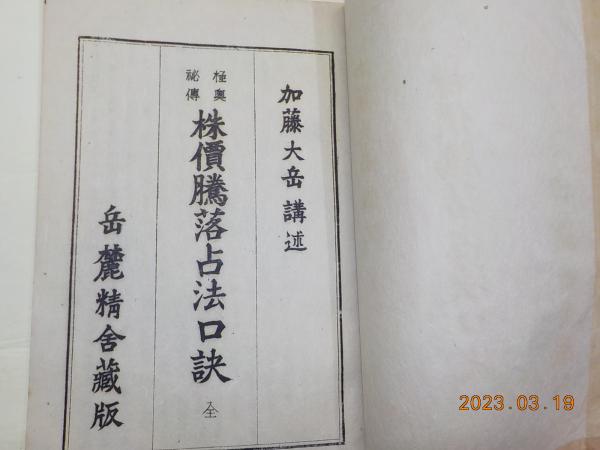 加藤大岳講述
極奥
祕傳
株價騰落占法口訣 全
岳麓精舍藏版
2023.03.19